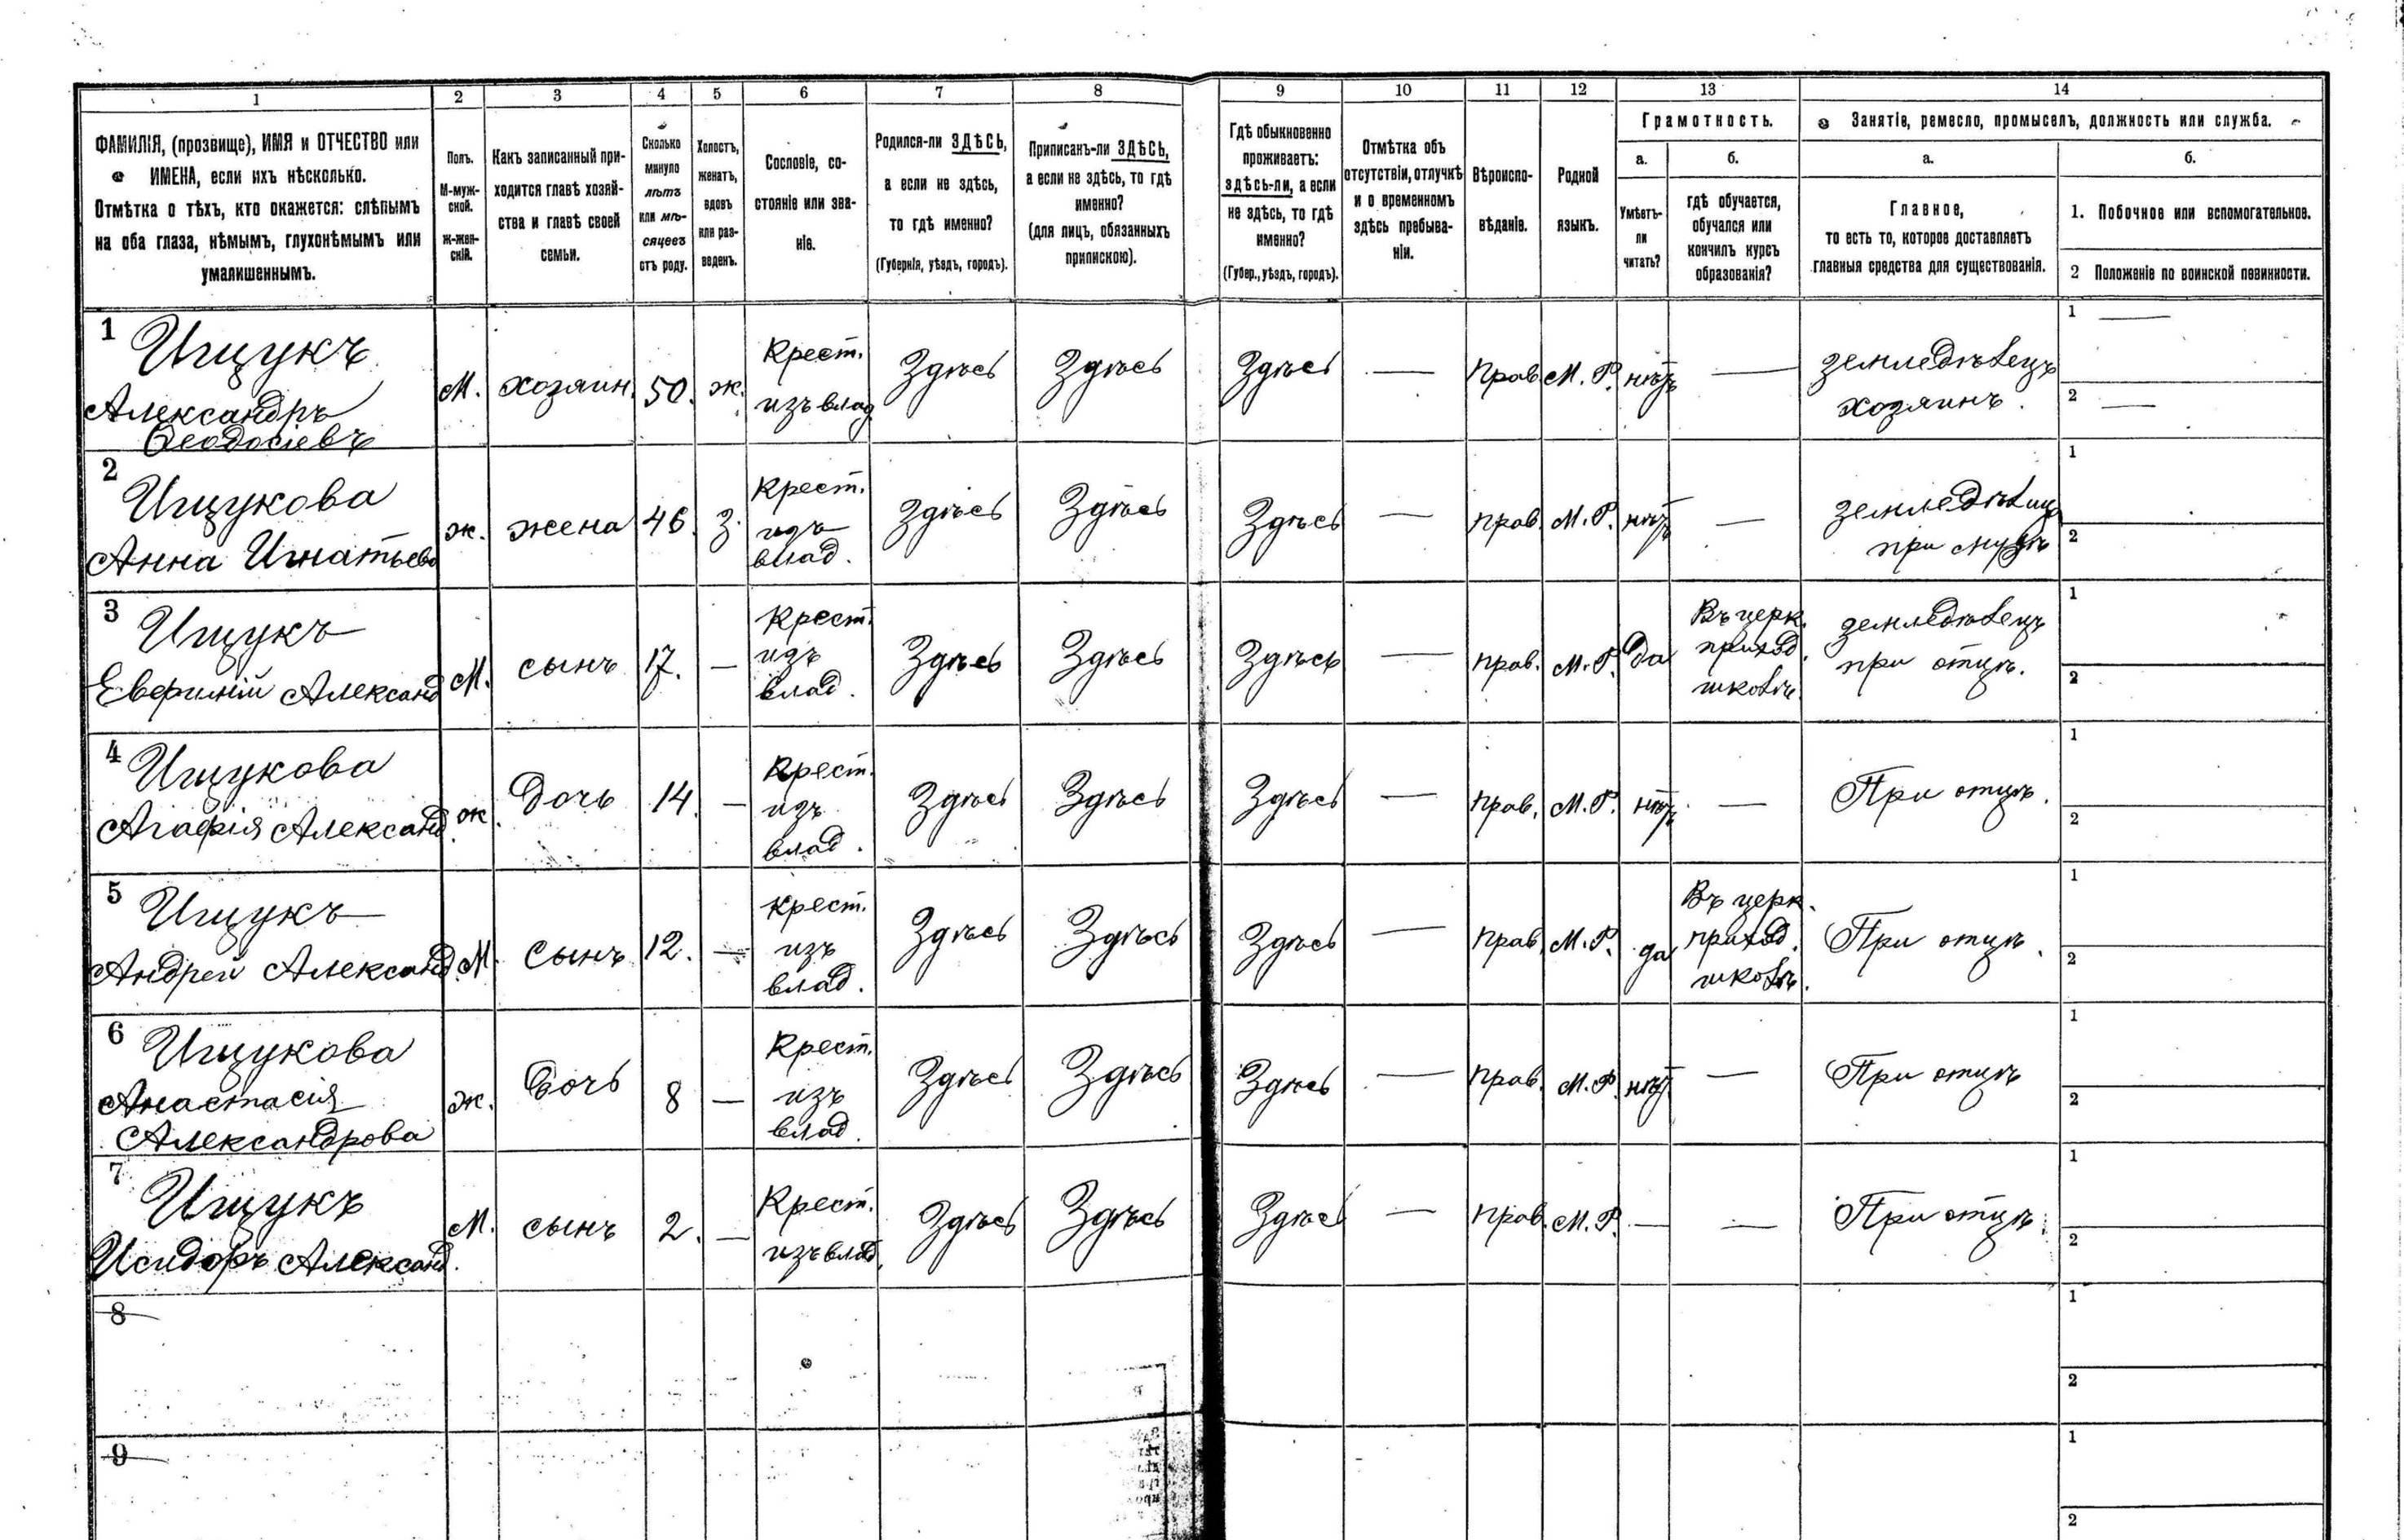 1 2 3 4 5 6 7 8 9 10 11 12 13 14
ФАМИЛІЯ, (прозвище), ИМЯ и ОТЧЕСТВО или
ИМЕНА, если ихъ нѣсколько.
Отмѣтка о тѣхъ, кто окажется: слѣпымъ
на оба глаза, нѣмымъ, глухонѣмымъ или
умалишеннымъ.
Полъ.
М-муж-
ской.
Ж-жен-
скій.
Какъ записанный при-
ходится главѣ хозяй-
ства и главѣ своей
семьи.
Сколько
минуло
лѣтъ
или мѣ-
сяцевъ
отъ роду.
Холостъ,
женатъ,
вдовъ
или раз-
веденъ.
Сословіе, со-
стояніе или зва-
ніе.
Родился-ли ЗДѢСЬ,
а если не здѣсь,
то гдѣ именно?
(Губернія, уѣздъ, городъ).
Приписанъ-ли ЗДѢСЬ,
а если не здѣсь, то гдѣ
именно?
(для лицъ, обязанныхъ
припискою).
Гдѣ обыкновенно
проживаетъ:
здѣсь-ли, а если
не здѣсь, то гдѣ
именно?
(Губер., уѣздъ, городъ).
Отмѣтка объ
отсутствіи, отлучкѣ
и о временномъ
здѣсь пребыва-
ніи.
Вѣроиспо-
вѣданіе.
Родной
языкъ.
Грамотность.
а.
Умѣетъ-
ли
читать?
б.
гдѣ обучается,
обучался или
кончилъ курсъ
образованія?
Занятіе, ремесло, промыселъ, должность или служба.
а.
Главное,
то есть то, которое доставляетъ
главныя средства для существованія.
б.
1. Побочное или вспомогательное.
2 Положеніе по воинской повинности.
1 Ищукъ
Александръ
Ѳеодосіевъ
М.
хозяин.
50.
ж.
Крест.
изъ влад
Здѣсь
Здѣсь
Здѣсь
—
Прав.
М. Р.
нѣтъ
—
земледѣлецъ
хозяинъ.
1 —
2 —
2 Ищукова
Анна Игнатьева
ж.
жена
46.
з.
Крест.
изъ
влад.
Здѣсь
Здѣсь
Здѣсь
—
прав.
М. Р.
нѣтъ
—
при мужѣ
1
2
3 Ищукъ
Александ
М.
сынъ
17.
—
Крест.
изъ
влад.
Здѣсь
Здѣсь
Здѣсь
—
прав.
М. Р.
да
Въ церк.
приход.
школѣ.
земледѣлецъ
при отцѣ.
1
2
4 Ищукова
Агафія Александ
ж.
дочь
14.
—
Крест.
изъ
влад.
Здѣсь
Здѣсь
Здѣсь
—
прав.
М. Р.
нѣтъ
—
При отцѣ.
1
2
5 Ищукъ
Андрей Александ
М.
сынъ
12.
—
крест.
изъ
влад.
Здѣсь
Здѣсь
Здѣсь
—
прав.
М. Р.
да
Въ церк.
приход.
школѣ.
При отцѣ.
1
2
6 Ищукова
Анастасія
Александрова
ж.
дочь
8
—
Крест.
изъ
влад.
Здѣсь
Здѣсь
Здѣсь
—
прав.
М. Р.
нѣтъ
—
При отцѣ
1
2
7 Ищукъ
Исидоръ Александ.
М.
сынъ
2.
—
Крест.
изъ влад.
Здѣсь
Здѣсь
Здѣсь
—
прав.
М. Р.
—
—
При отцѣ.
1
2
8
1
2
9
1
2